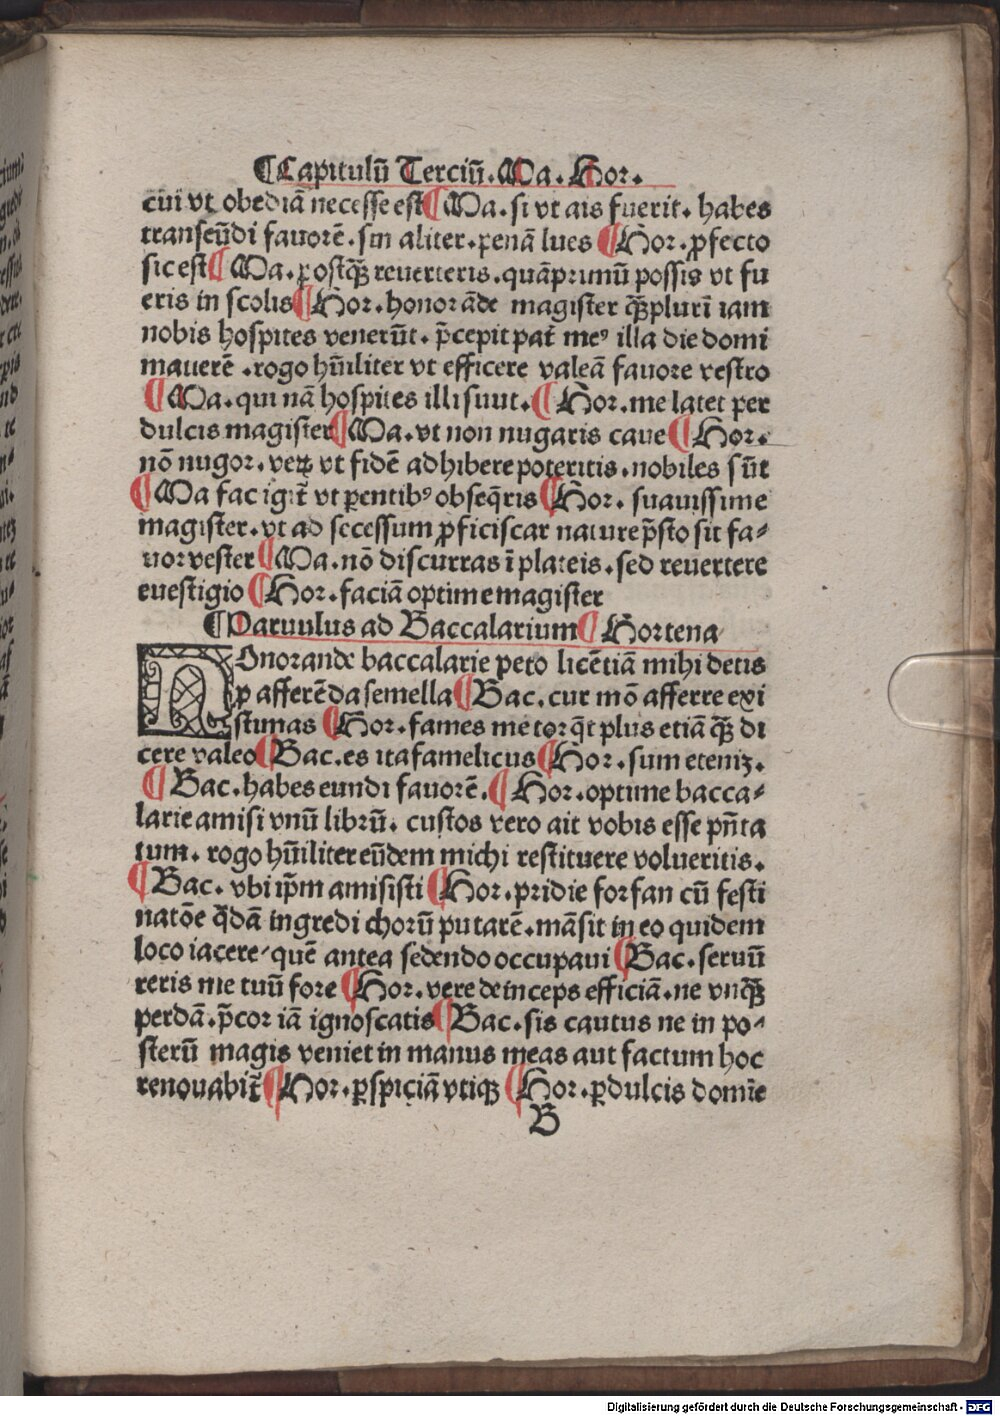 ¶Capitulū Terciū. Ma. Hor.
cui vt obediā necesse est ¶ Ma. si vt ais fuerit. habes
transeūdi fauorē. sin aliter. penā lues ¶ Hor. ꝓfecto
sic est ¶ Ma. postꝙ̄ reuerteris. quāprimū possis vt fu
eris in scolis ¶ Hor. honorāde magister ꝙ̄plurī iam
nobis hospites venerūt. p̄cepit pat̄ meꝰ illa die domi
mauerē. rogo hūiliter vt efficere valeā fauore vestro
¶ Ma. qui nā hospites illi suut. ¶ Hor. me latet per
dulcis magister ¶ Ma. vt non nugaris caue ¶ Hor.
nō nugor. veꝝ vt fidē adhibere poteritis. nobiles sūt
¶ Ma fac igit̄ vt ꝑentibꝰ obseq̄ris ¶ Hor. suauissime
magister. vt ad secessum ꝓficiscar nature p̄sto sit fa-
uor vester ¶ Ma. nō discurras ī plateis. sed reuertere
euestigio ¶ Hor. faciā optime magister
¶Paruulus ad Baccalarium ¶ Hortena
HOnorande baccalarie peto licētiā mihi detis
ꝓ afferēda semella ¶ Bac. cur mō afferre exi
stimas ¶ Hor. fames me torq̄t plus etiā ꝙ̄ di
cere valeo ¶ Bac. es ita famelicus ¶ Hor. sum eteniꝫ.
¶ Bac. habes eundi fauorē. ¶ Hor. optime bacca-
larie amisi vnū librū. custos vero ait vobis esse pn̄ta
tum. rogo hūiliter eūdem michi restituere volueritis.
¶ Bac. vbi ip̄m amisisti ¶ Hor. pridie forsan cū festi
natōe q̄dā ingredi chorū putarē. māsit in eo quidem
loco iacere quē antea sedendo occupaui ¶ Bac. seruū
reris me tuū fore ¶ Hor. vere deinceps efficiā. ne vnꝙ̄
perdā. p̄cor iā ignoscatis ¶ Bac. sis cautus ne in po-
sterū magis veniet in manus meas aut factum hoc
renouabit̄ ¶ Hor. ꝑspiciā vtiqꝫ ¶ Hor. ꝑdulcis domīe
B
Digitalisierung gefördert durch die Deutsche Forschungsgemeinschaft - DFG